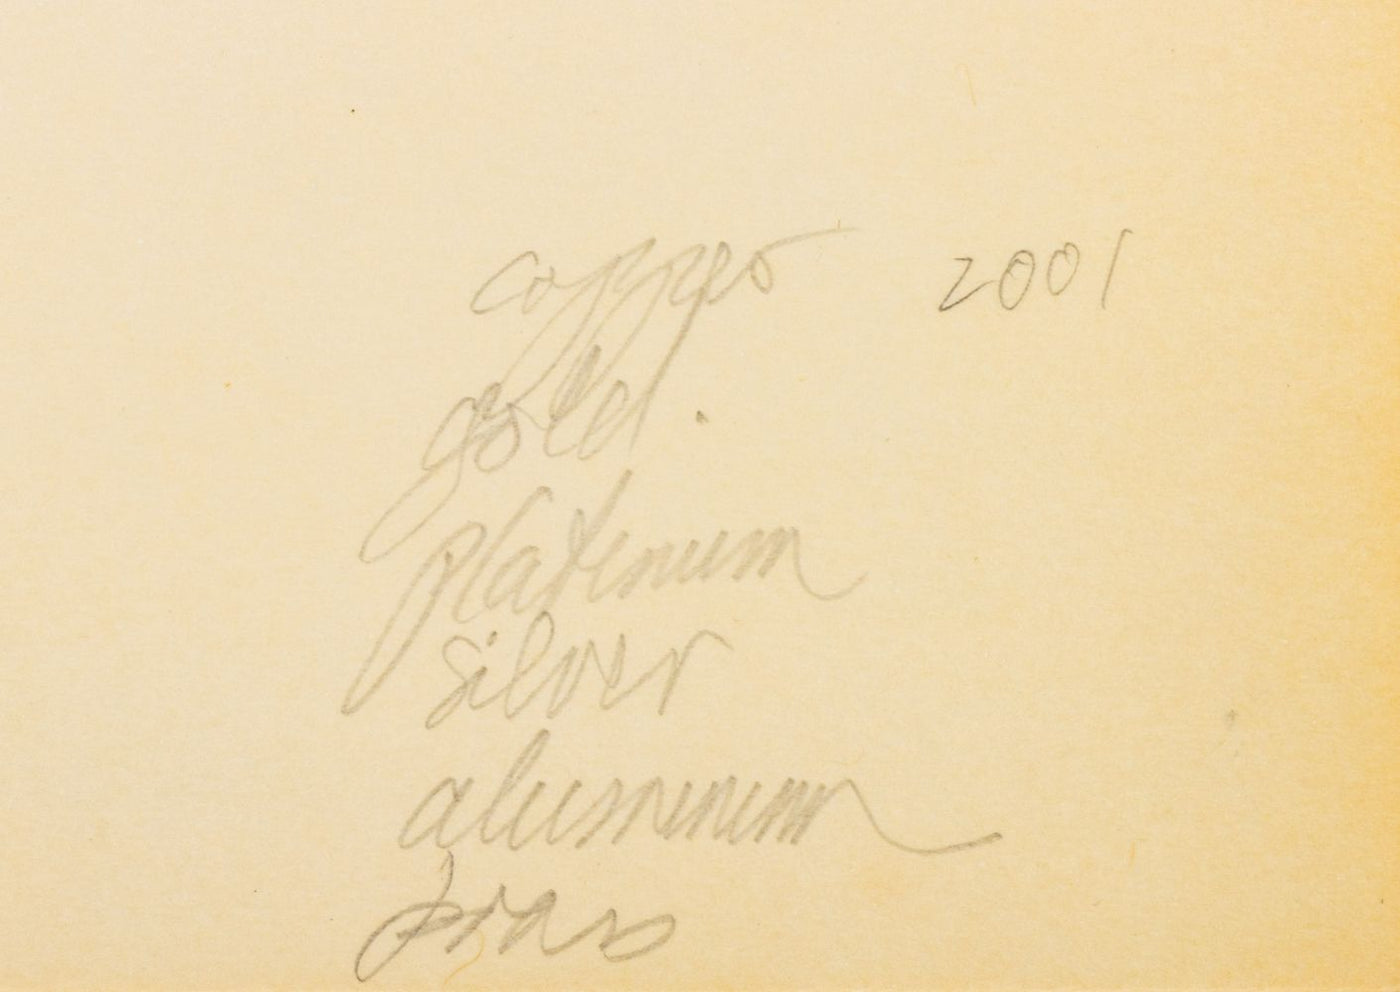 copper 2001
gold
platinum
silver
aluminum
brass